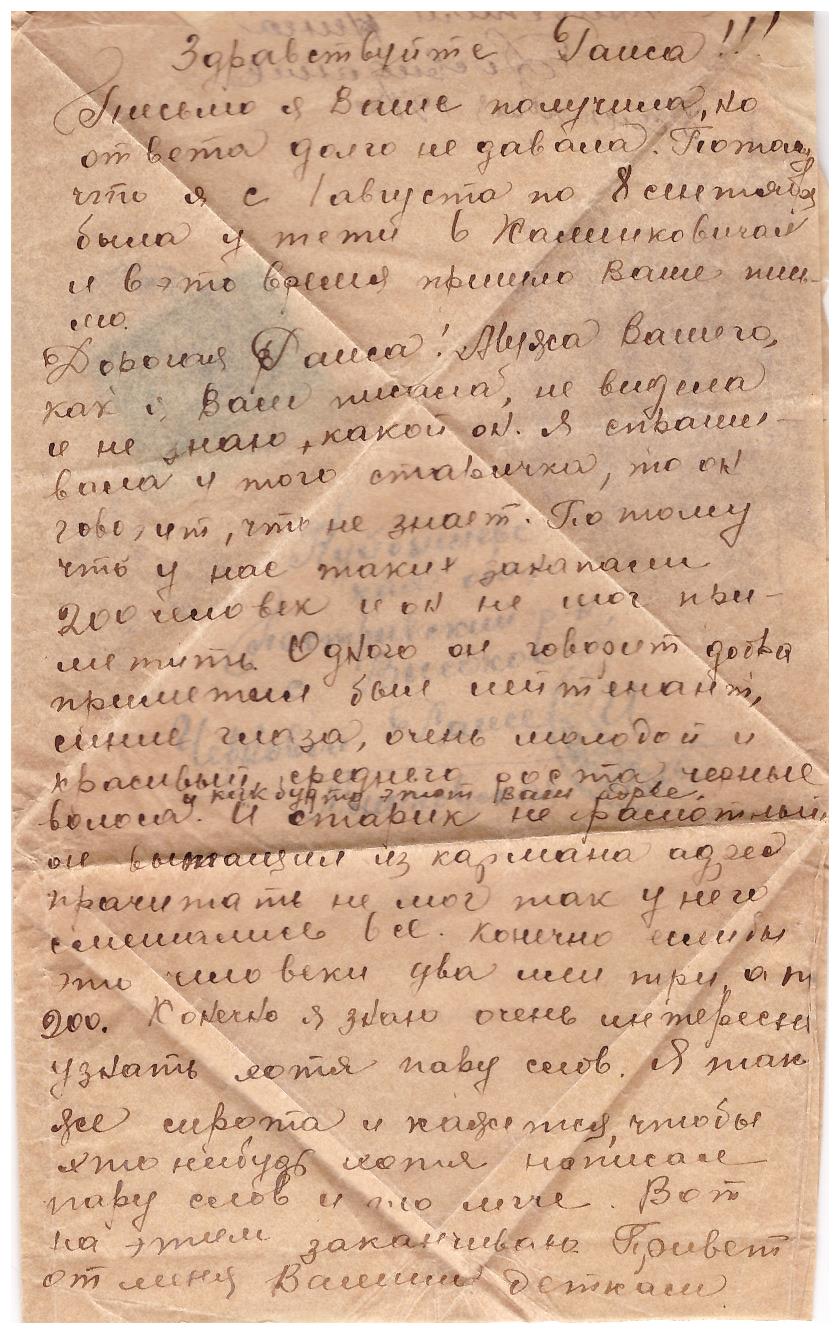 Здравствуйте Раиса!!!
Письмо я Ваше получила, но
ответа долго не давала. Потому
что я с 1 августа по 8 сентября
была у тети в Калинковичах
и в это время пришло Ваше пись-
мо.
Дорогая Раиса! Мужа Вашего,
как я Вам писала, не видела
и не знаю, какой он. Я спраши-
вала у того старичка, то он
говорит, что не знает. Потому
что у нас таких закапали
200 человек и он не мог при-
метить. Одного он говорит добра
приметил был лейтенант,
синие глаза, очень молодой и
красивый среднего роста черные
и как будто этот Ваш адрес.
волоса. И старик не грамотный
он вытащил из кармана адрес
прачитать не мог так у него
смешались все. Конечно если бы
это человеки два или три, а то
200. Конечно я знаю очень интересно
узнать хотя пару слов. Я так
же сирота и кажется, чтобы
хто небудь хотя написал
пару слов и то легче. Вот
на этом заканчиваю. Привет
от меня Вашим деткам